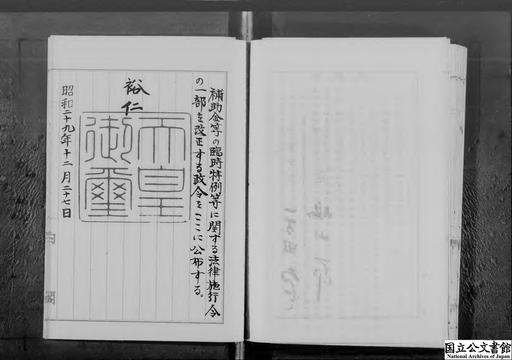 補助金等の臨時特例等に関する法律施行令
の一部を改正する政令をここに公布する。
裕仁
天皇
御璽
昭和二十九年十二月二十七日
内閣
国立公文書館
National Archives of Japan